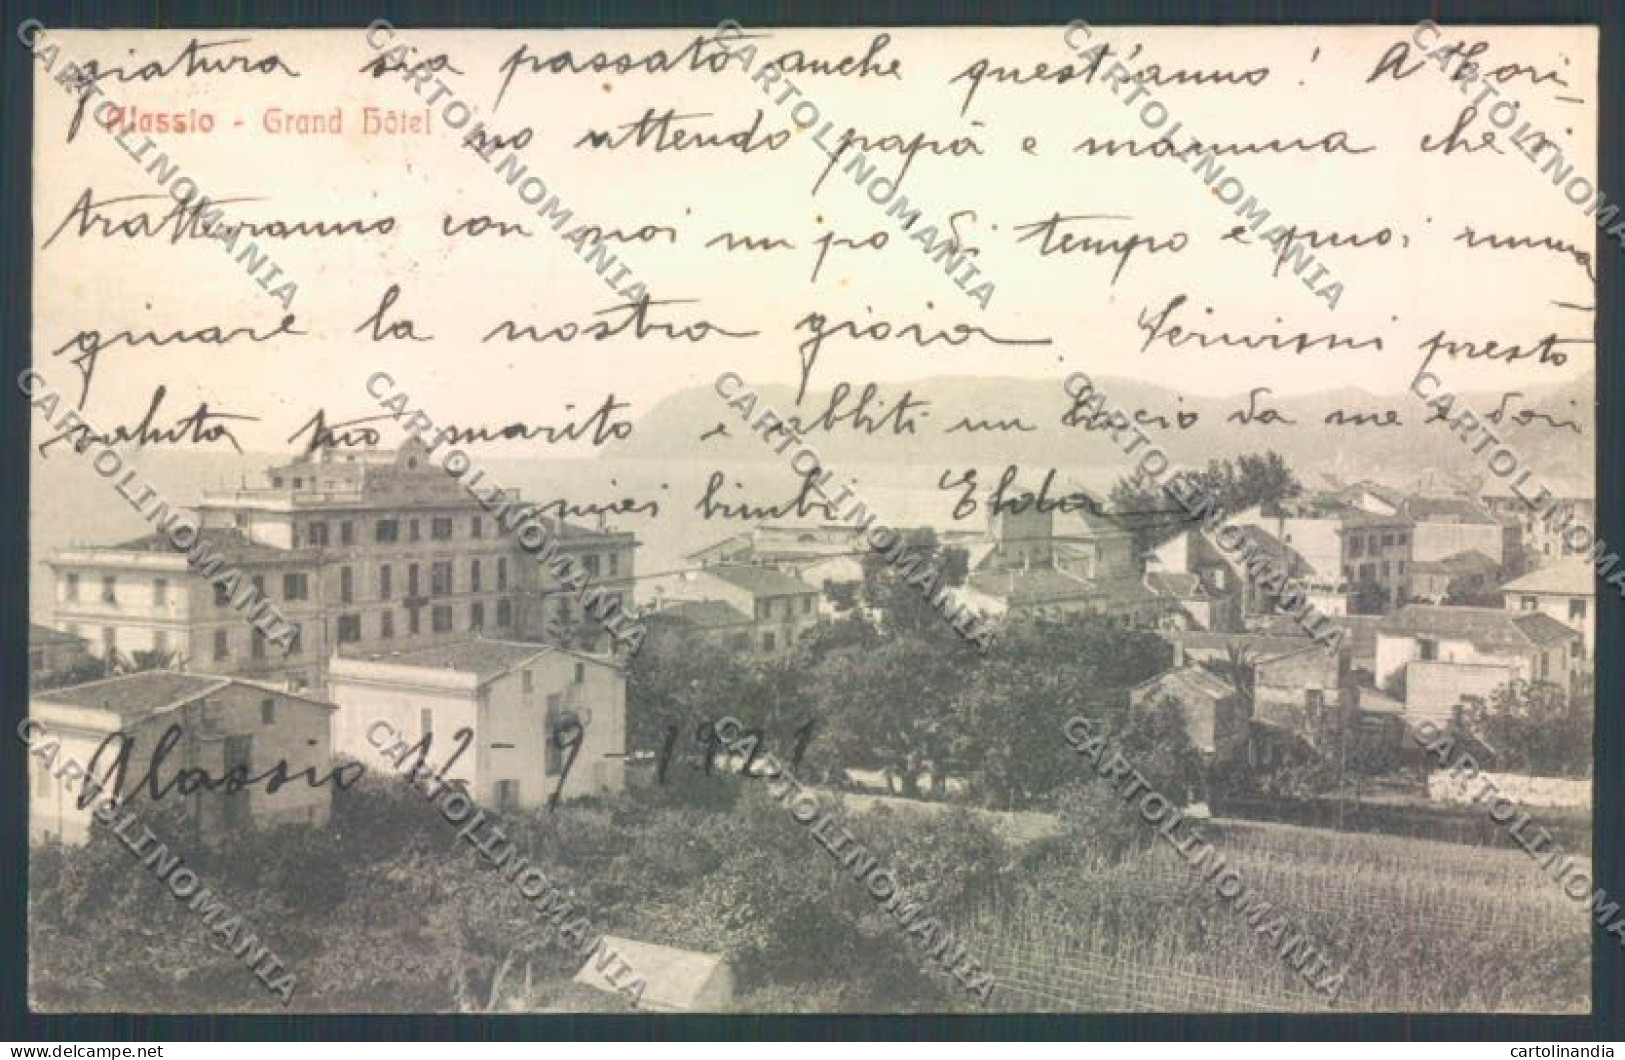 giatura sia passato anche quest'anno! A Tori-
Alassio - Grand Hôtel
no attendo papà e mamma che si
tratteranno con noi un po' di tempo e puoi imma
ginare la nostra gioia. Scrivimi presto
saluta tuo marito e abbiti un bacio da me e dai
miei bimbi Elda
Alassio 12-9-1921
CARTOLINOMANIA
delcampe.net
cartolinandia